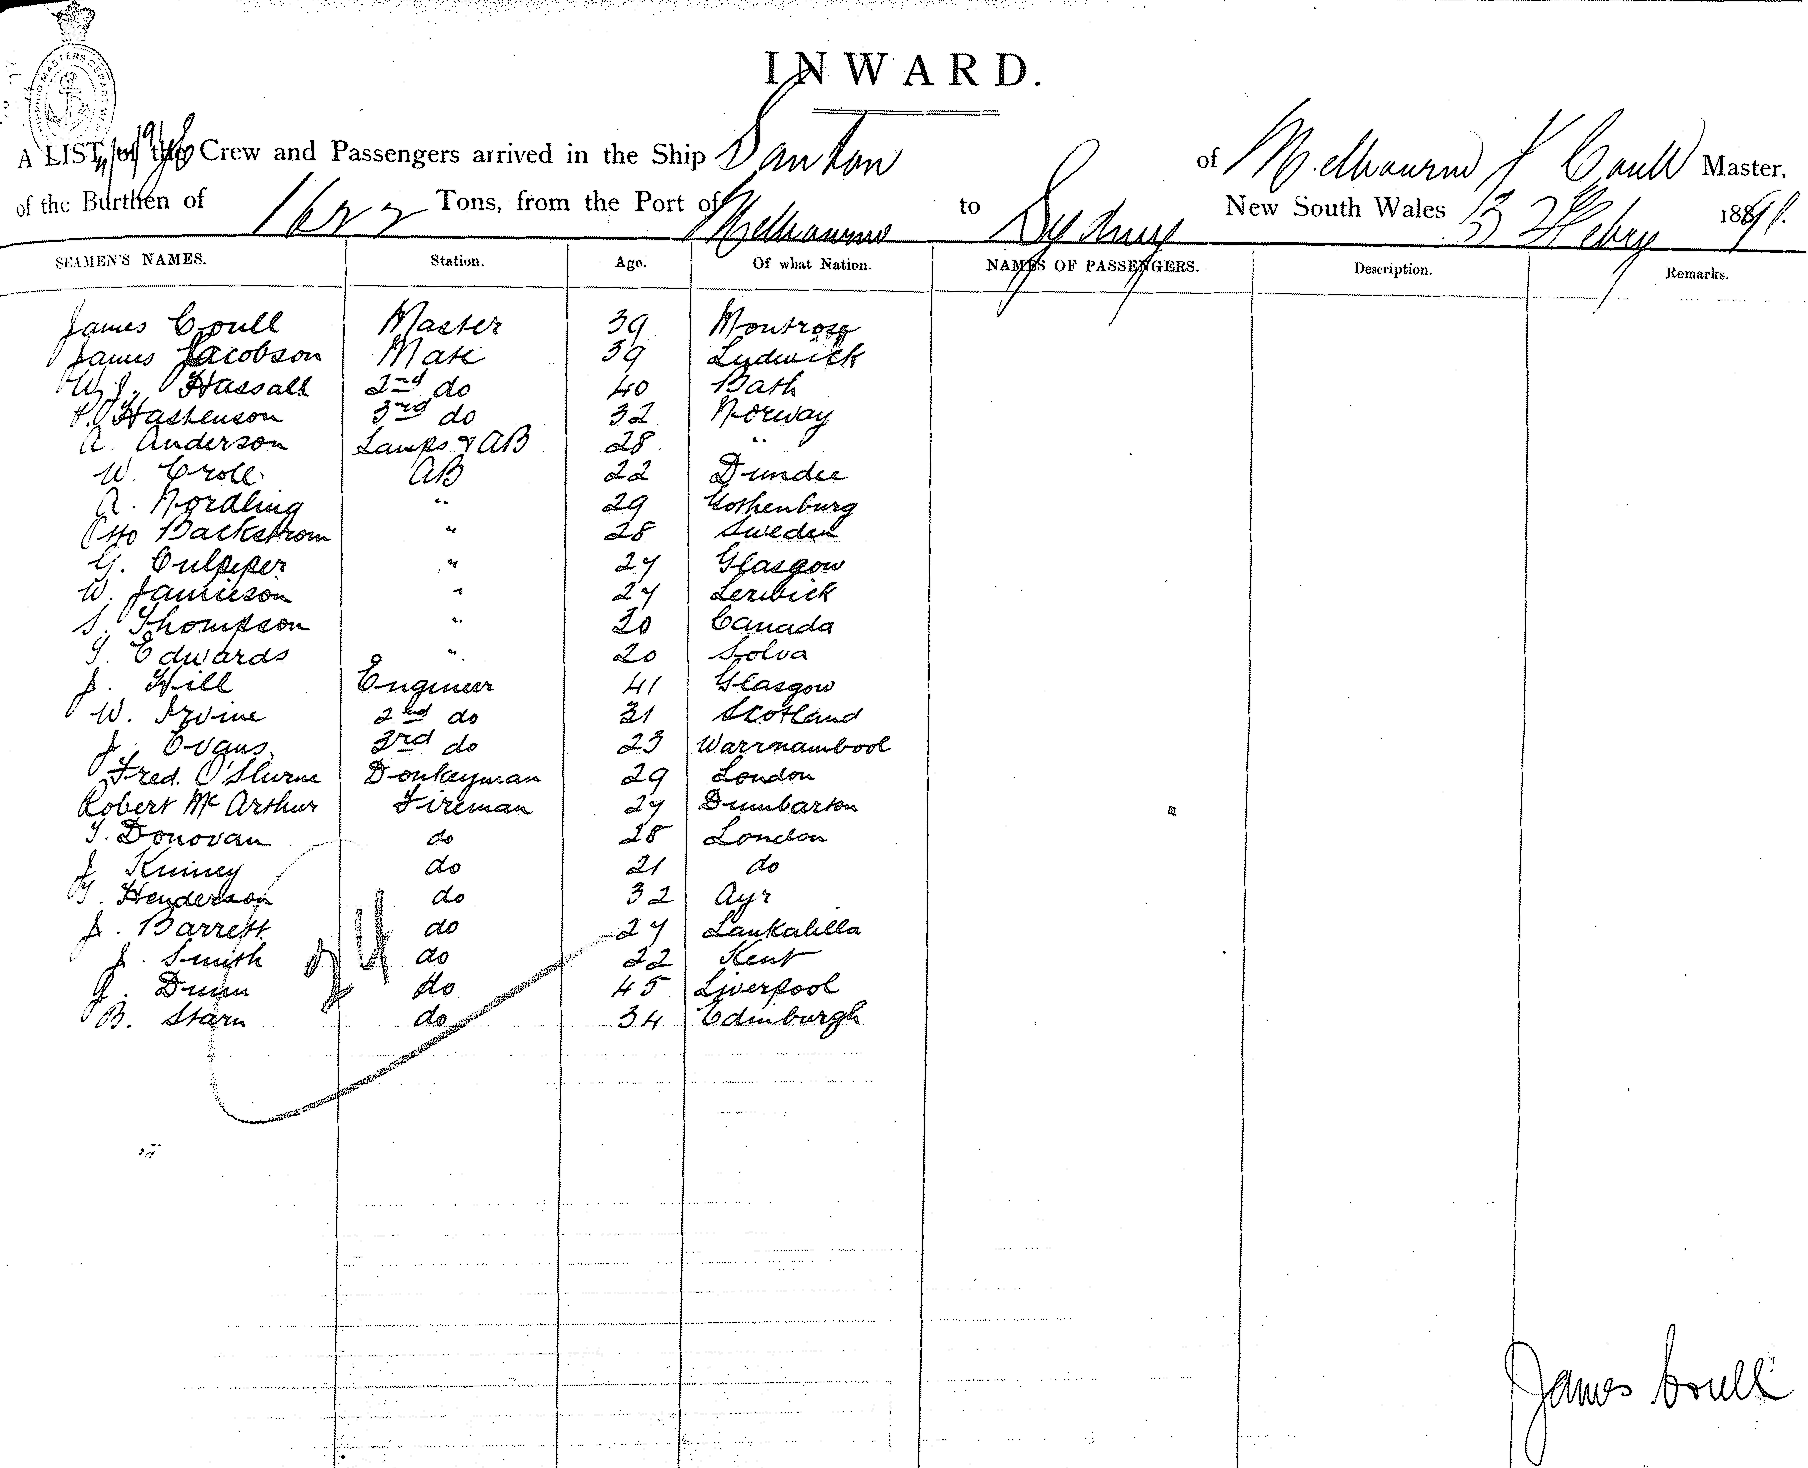 INWARD.
A LIST of the Crew and Passengers arrived in the Ship Santon of Melbourne J Coull Master,
of the Burthen of 1622 Tons, from the Port of Melbourne to Sydney New South Wales 3 Febry 1891.
SEAMEN'S NAMES. Station. Age. Of what Nation. NAMES OF PASSENGERS. Description. Remarks.
James Coull Master 39 Montrose
James Jacobson Mate 39 Ludwick
W. J. Hassall 2nd do 40 Bath
P. Hastenson 3rd do 32 Norway
A. Anderson Lamps & AB 28 "
W. Croll AB 22 Dundee
A. Nordling " 29 Gothenburg
Otto Backstrom " 28 Sweden
G. Culpeper " 27 Glasgow
W. Jamieson " 27 Lerwick
S. Thompson " 20 Canada
T. Edwards " 20 Solva
J. Hill Engineer 41 Glasgow
W. Irvine 2nd do 31 Scotland
J. Evans 3rd do 23 Warrnambool
Fred. Donkeyman 29 London
Robert McArthur Fireman 27 Dumbarton
T. Donovan do 28 London
J. Kinney do 21 do
T. Henderson do 32 Ayr
J. Barrett do 27 Yankalilla
J. Smith do 22 Kent
G. Dunn do 45 Liverpool
B. Starn do 34 Edinburgh
James Coull